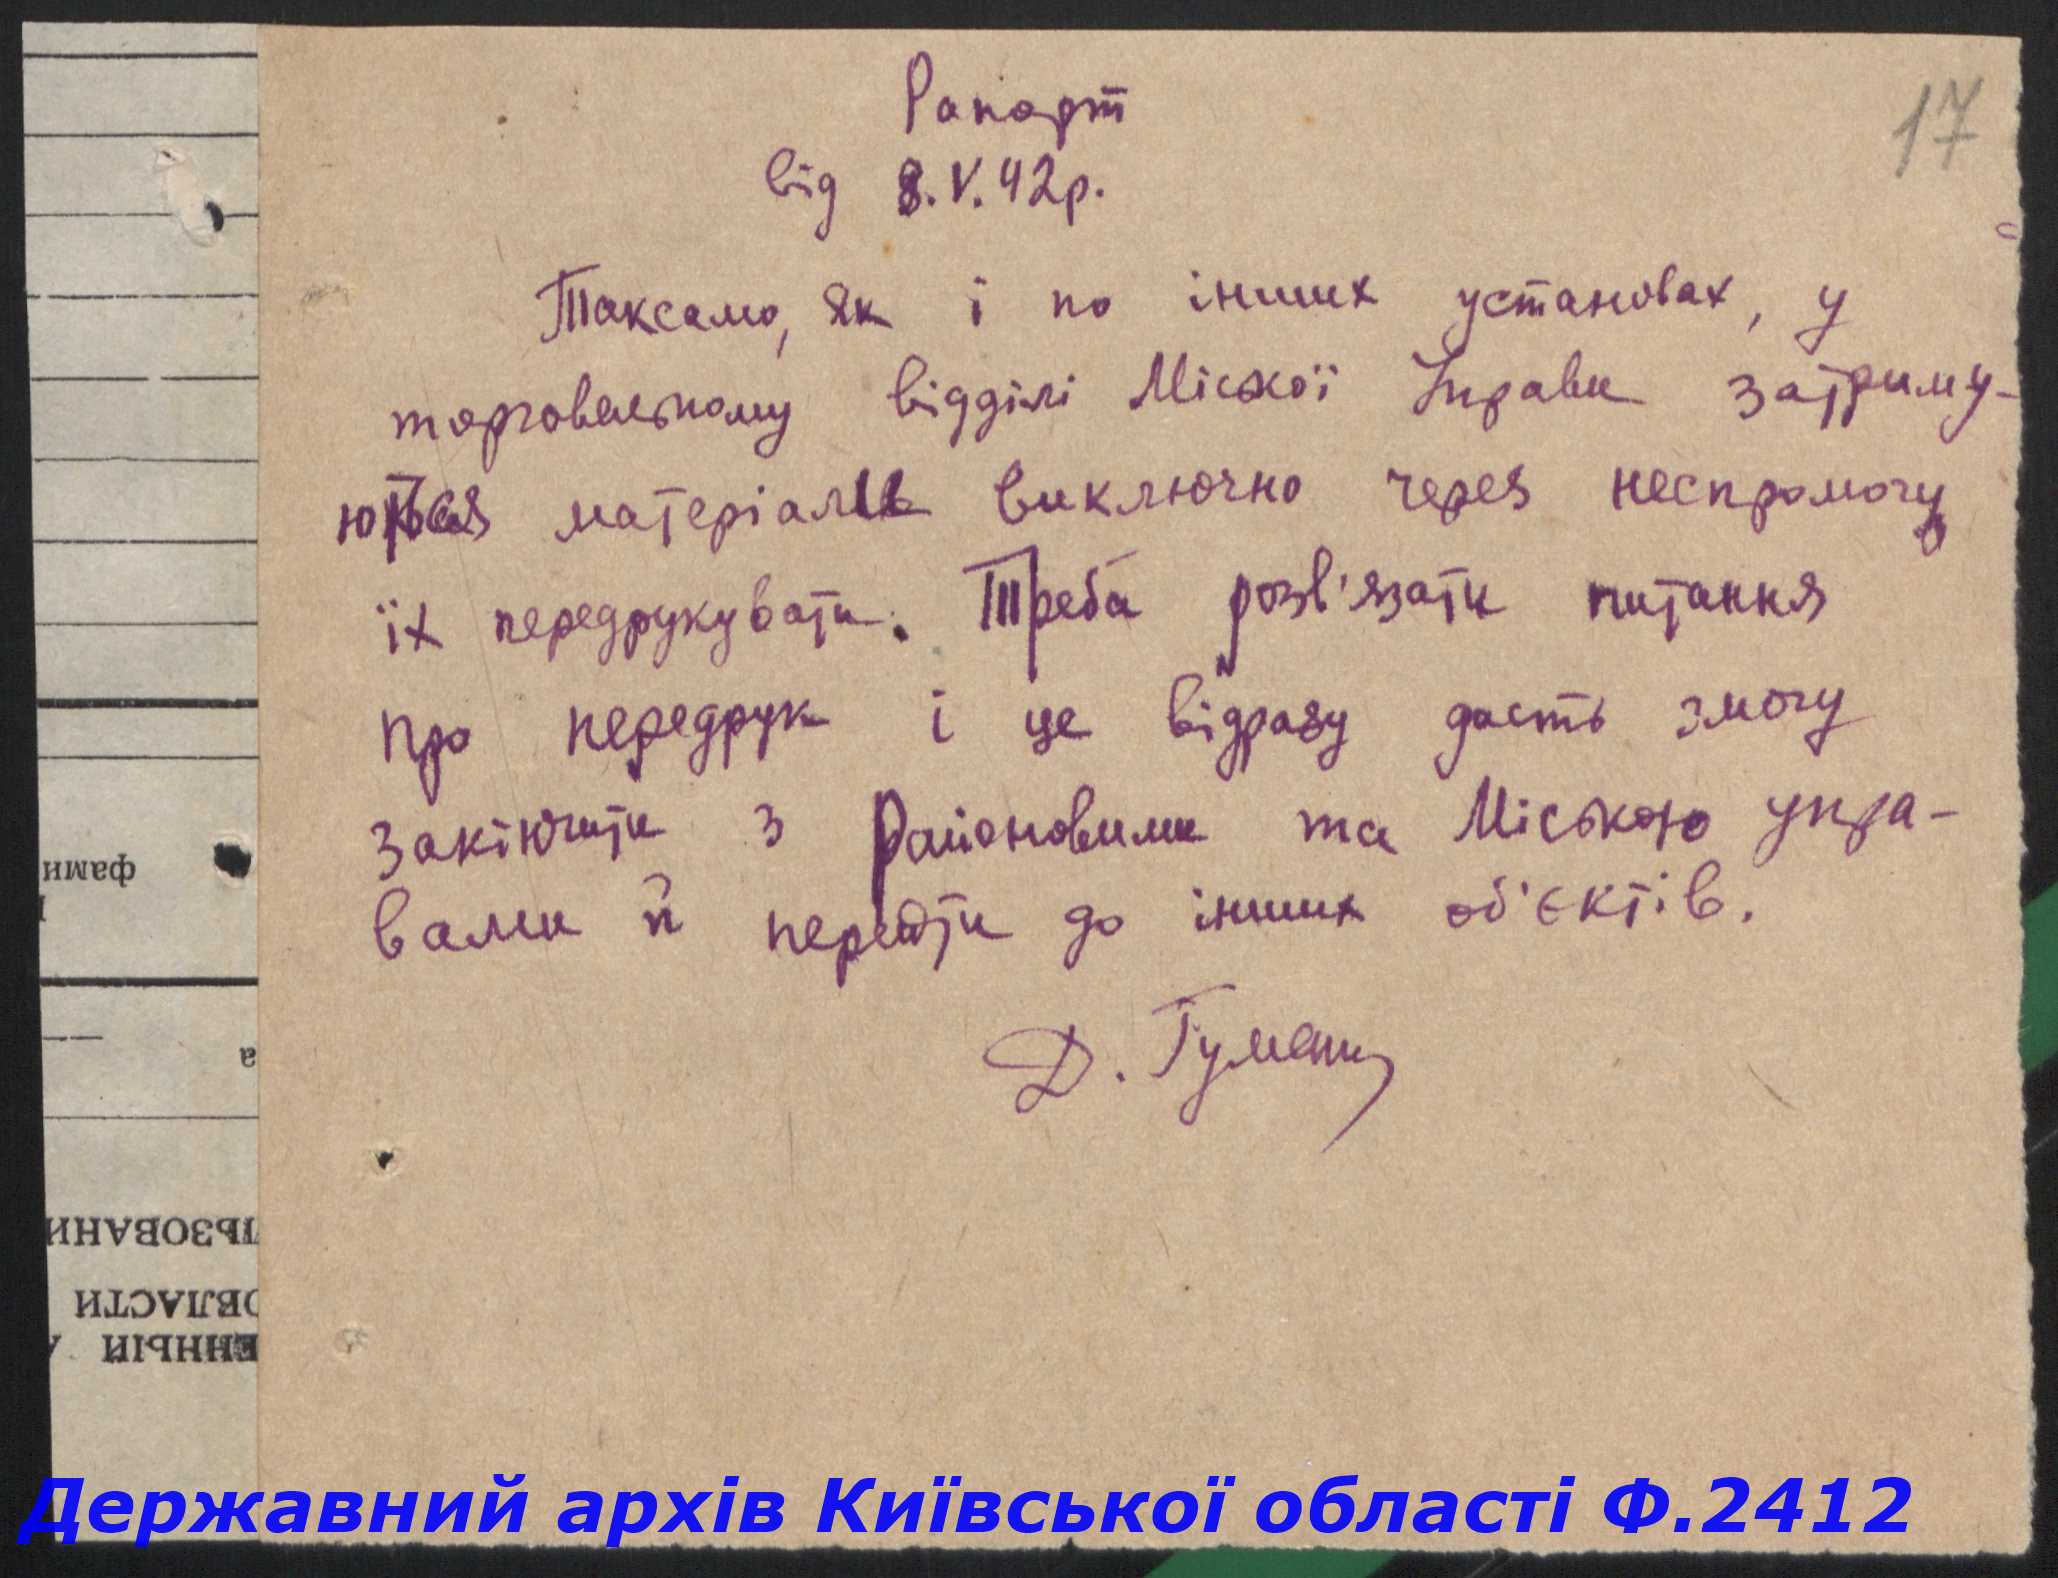 17
Рапорт
від 8.V.42р.
Таксамо, як і по інших установах, у
торговельному відділі Міської Управи затриму-
ються матеріали виключно через неспромогу
їх передрукувати. Треба розв'язати питання
про передрук і це відразу дасть змогу
закінчити з Районовими та Міською упра-
вами й перейти до інших об'єктів.
Д. Гумен
фами
а
ЛЬЗОВАНИ
ОБЛАСТИ
ЕННЫЙ А
Державний архів Київської області Ф.2412